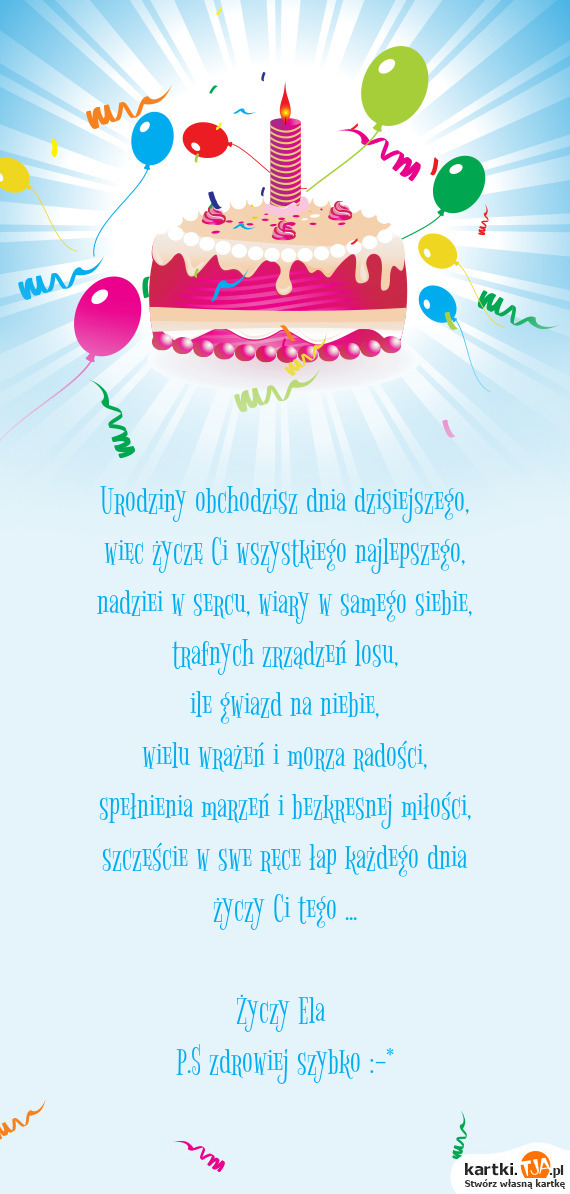 Urodziny obchodzisz dnia dzisiejszego,
więc życzę Ci wszystkiego najlepszego,
nadziei w sercu, wiary w samego siebie,
trafnych zrządzeń losu,
ile gwiazd na niebie,
wielu wrażeń i morza radości,
spełnienia marzeń i bezkresnej miłości,
szczęście w swe ręce łap każdego dnia
życzy Ci tego ...
Życzy Ela
P.S zdrowiej szybko :-*
kartki.TJA.pl
Stwórz własną kartkę